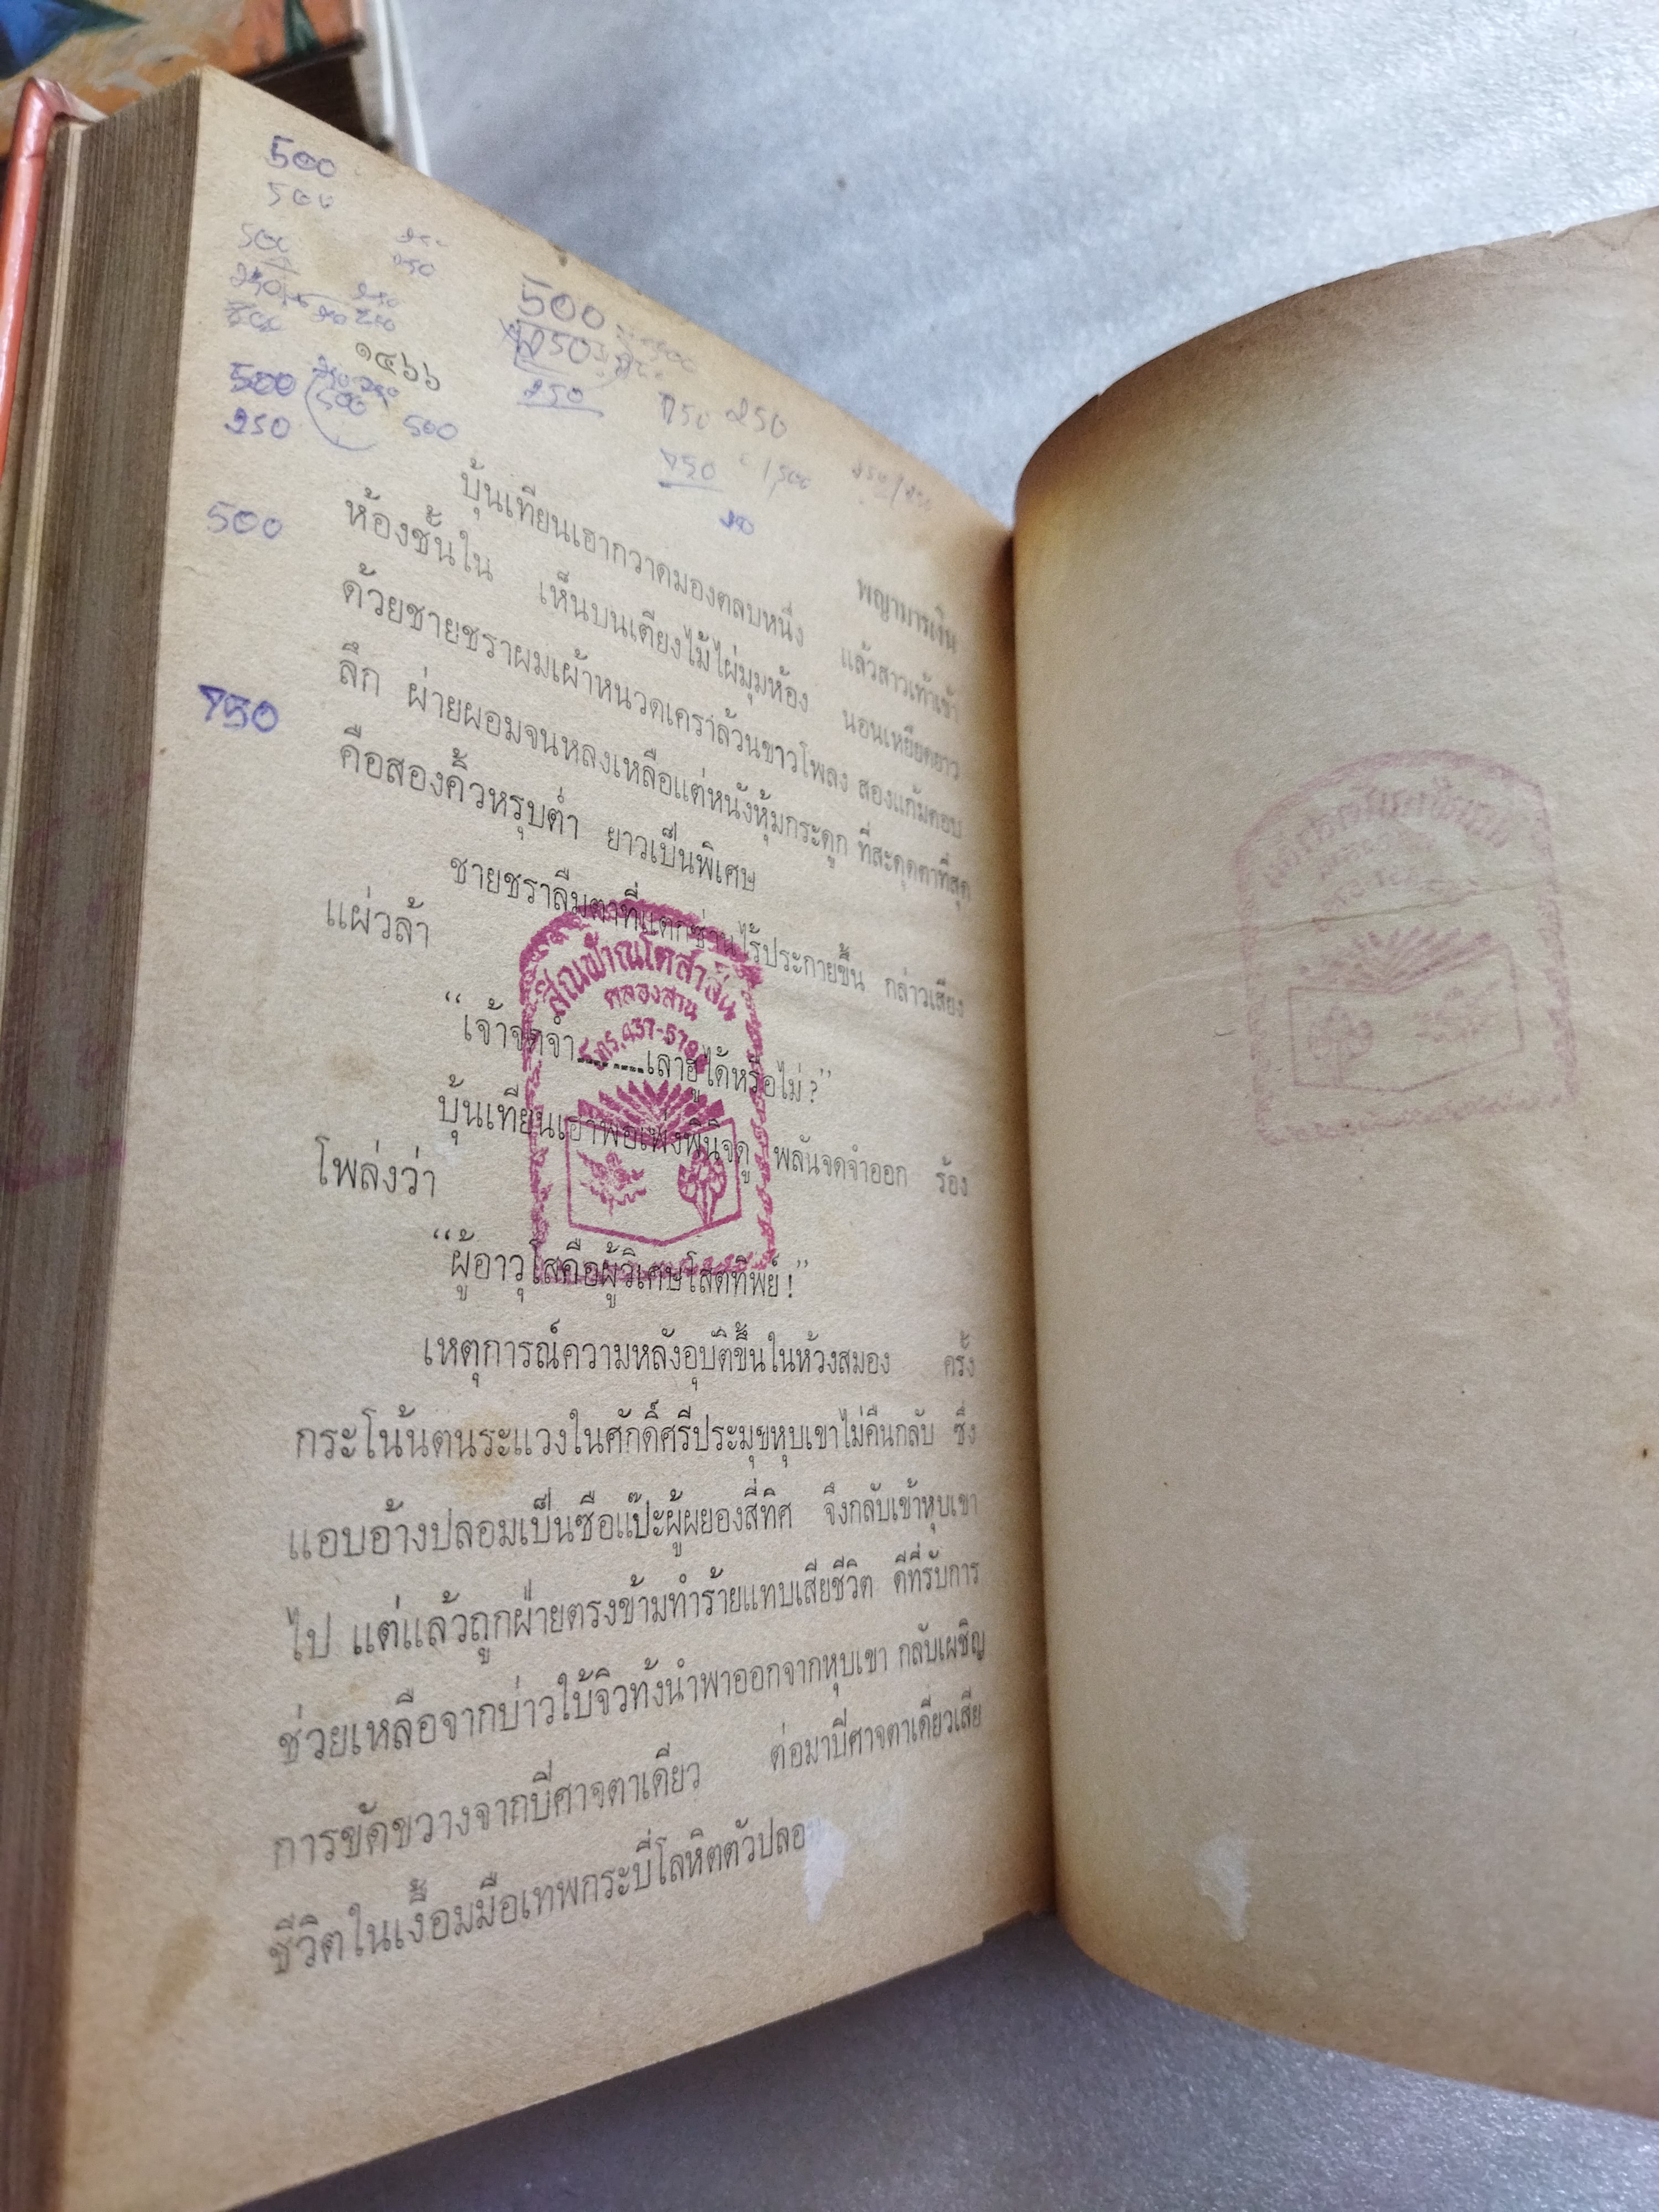 500
500
500
250
250
500
250
500
250
500
250
250
750 250
750
20
500
750
๑๔๖๖
พญามารเงิน
บุ้นเทียนเฮากวาดมองตลบหนึ่ง แล้วสาวเท้าเข้า
ห้องชั้นใน เห็นบนเตียงไม้ไผ่มุมห้อง นอนเหยียดยาว
ด้วยชายชราผมเผ้าหนวดเคราล้วนขาวโพลง สองแก้มตอบ
ลึก ผ่ายผอมจนหลงเหลือแต่หนังหุ้มกระดูก ที่สะดุดตาที่สุด
คือสองคิ้วหรุบต่ำ ยาวเป็นพิเศษ
ชายชราลืมตาที่แตกซ่านไร้ประกายขึ้น กล่าวเสียง
แผ่วล้า
“เจ้าจดจำ..........เลาฮูได้หรือไม่?”
บุ้นเทียนเฮาพอเพ่งพินิจดู พลันจดจำออก ร้อง
โพล่งว่า
“ผู้อาวุโสคือผู้วิเศษโสตทิพย์!”
เหตุการณ์ความหลังอุบัติขึ้นในห้วงสมอง ครั้ง
กระโน้นตนระแวงในศักดิ์ศรีประมุขหุบเขาไม่คืนกลับ ซึ่ง
แอบอ้างปลอมเป็นซือแป๊ะผู้ผยองสี่ทิศ จึงกลับเข้าหุบเขา
ไป แต่แล้วถูกฝ่ายตรงข้ามทำร้ายแทบเสียชีวิต ดีที่รับการ
ช่วยเหลือจากบ่าวใบ้จิวทั้งนำพาออกจากหุบเขา กลับเผชิญ
การขัดขวางจากปีศาจตาเดียว ต่อมาปีศาจตาเดียวเสีย
ชีวิตในเงื้อมมือเทพกระบี่โลหิตตัวปลอ
คลองสาน
โทร.437-57